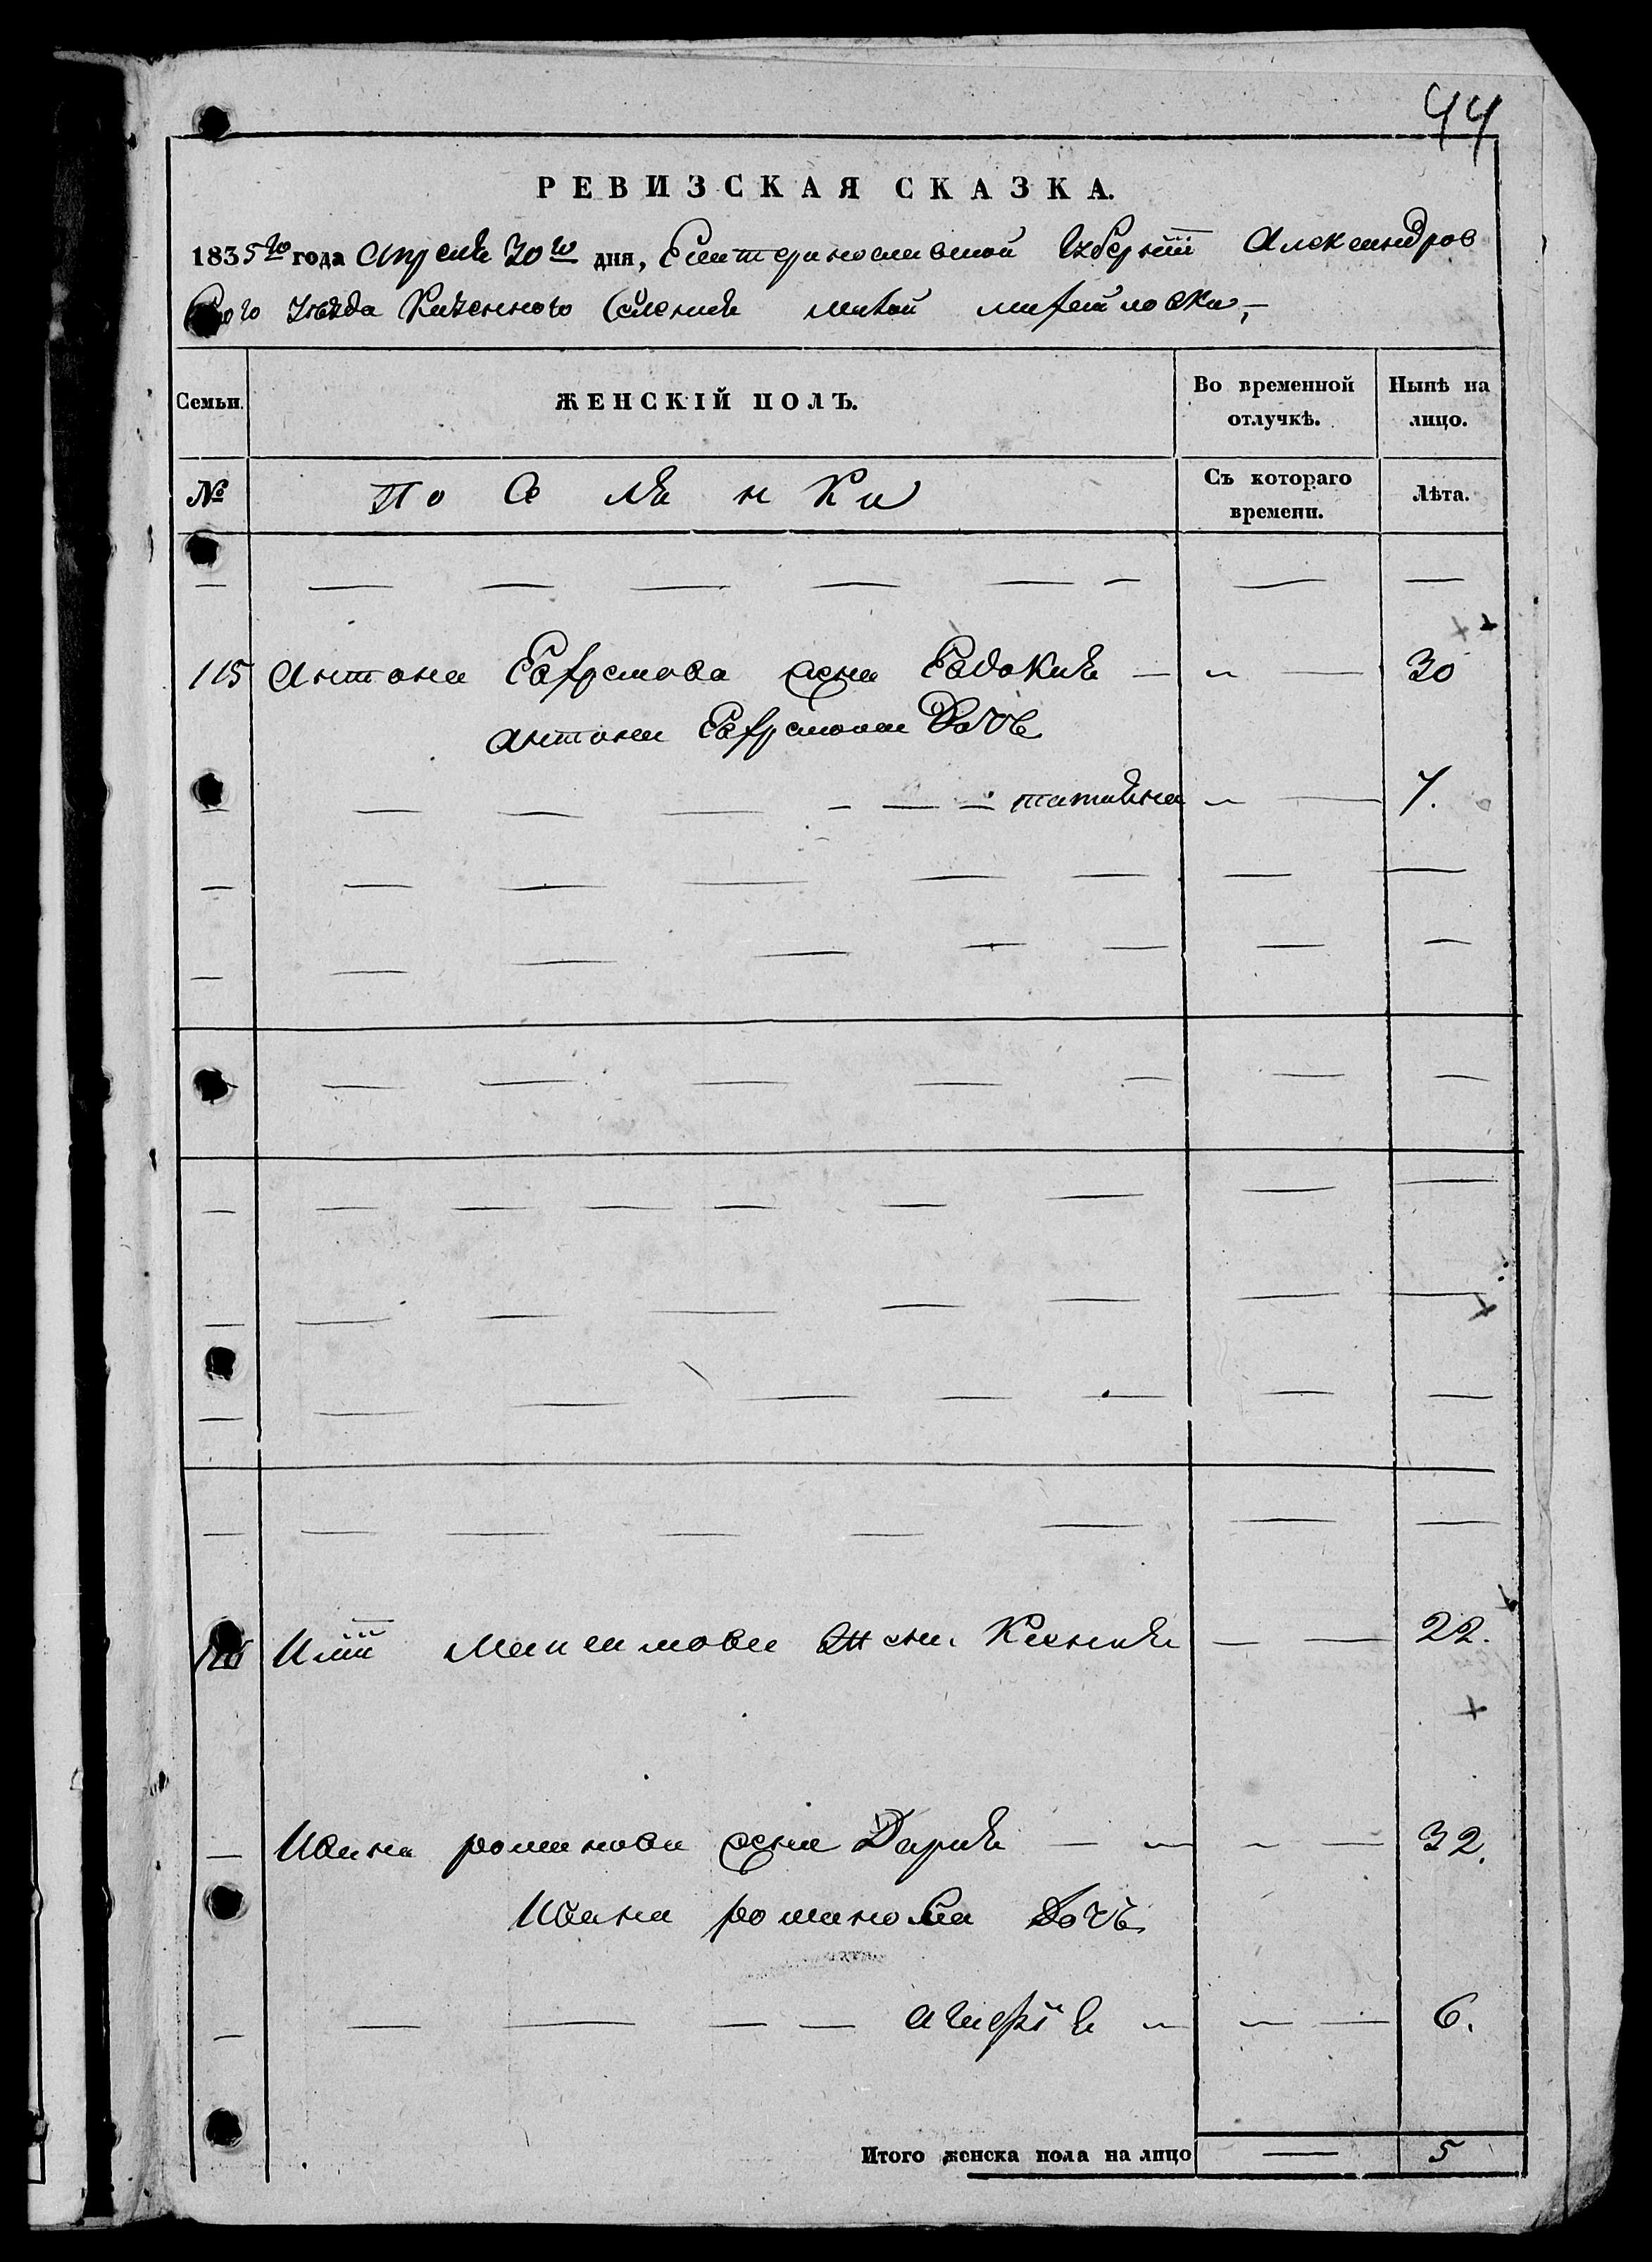 44
РЕВИЗСКАЯ СКАЗКА.
1835го года Апреля 30го дня, Екатеринославской Губернiи Александров
ского уезда Казенного Селения малой михайловки,
Семьи.
ЖЕНСКІЙ ПОЛЪ.
Во временной отлучкѣ.
Нынѣ на лицо.
№
Посѣлянки
Съ котораго времени.
Лѣта.
115 Антона Ефремова жена Евдокия 30
антона Ефремова Дочь
татияна 7.
Илiи жена Ксения 22.
Ивана романова жена Дария 32.
Ивана романова Дочь
агафiя 6.
Итого женска пола на лицо 5